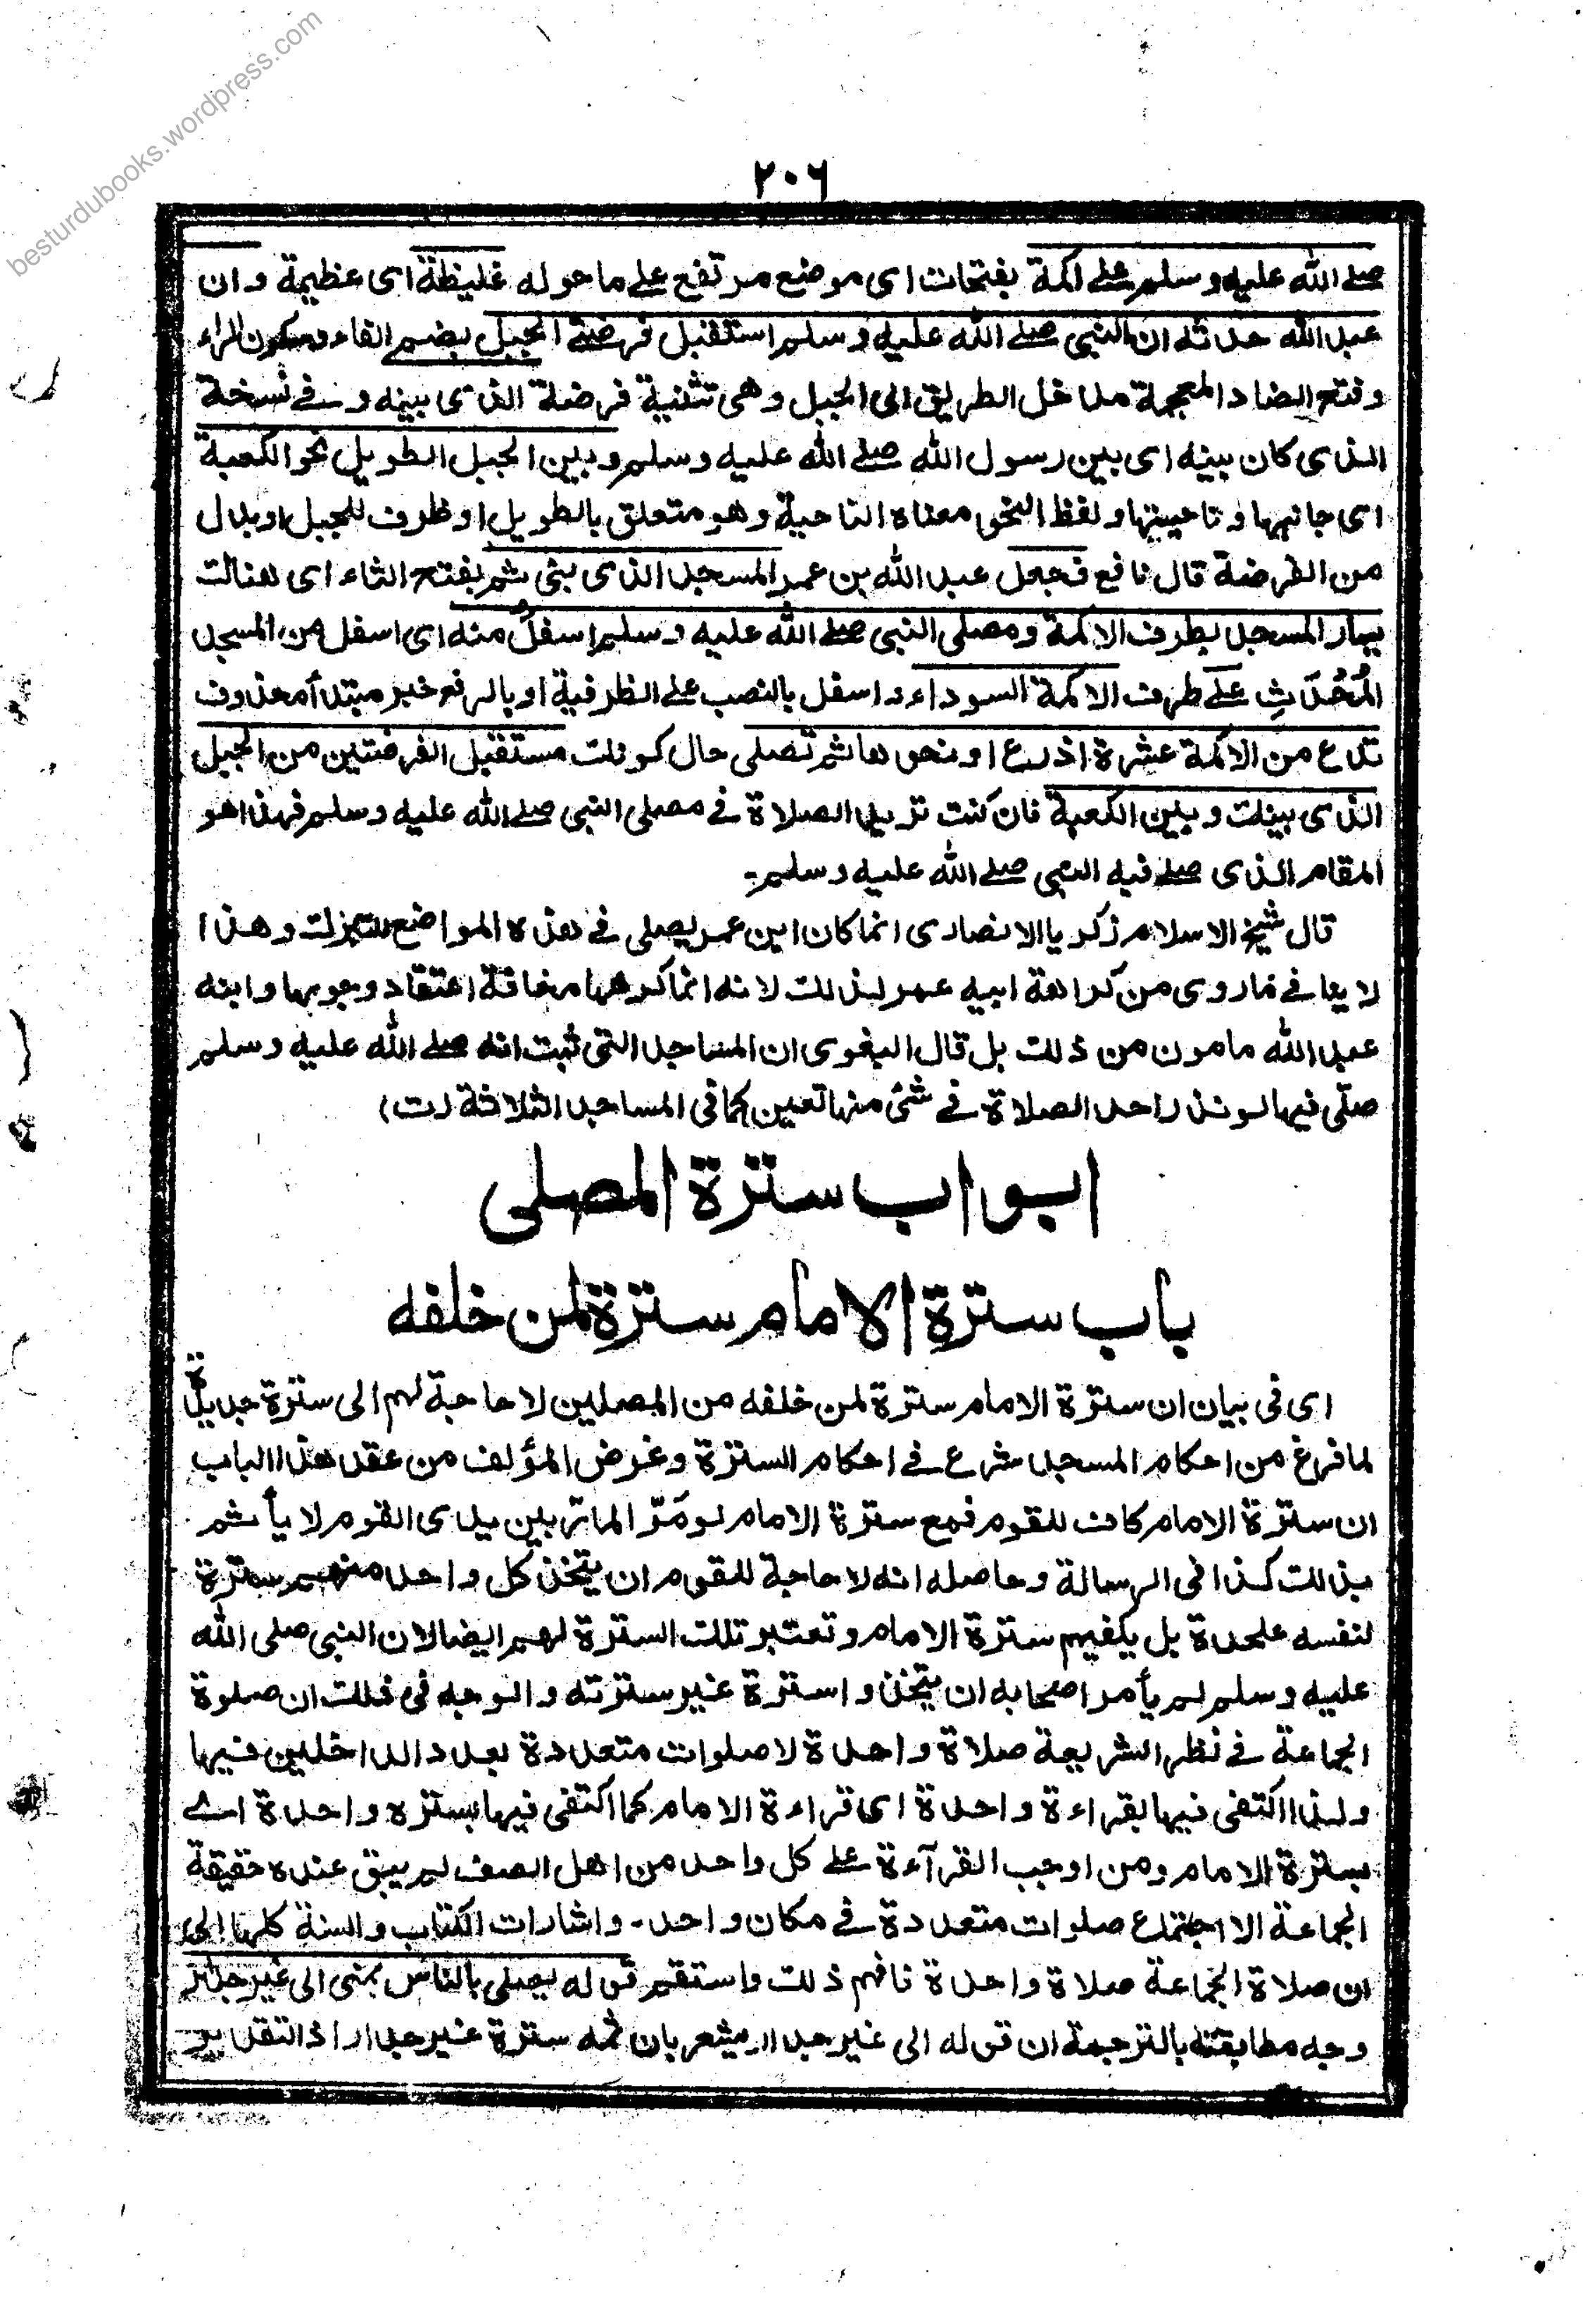 besturdubooks.wordpress.com
٢٠٦
صلى الله عليه وسلم على اكمة بفتحات اى موضع مرتفع على ما حوله غليظة اى عظيمة وان
عبد الله حدثه ان النبي صلى الله عليه وسلم استقبل فرضتى الجبل بضم الفاء وسكون الراء
وفتح الضاد المعجمة مداخل الطريق الى الجبل وهى تثنية فرضة الذى بينه و في نسخة
الذى كان بينه اى بين رسول الله صلى الله عليه وسلم وبين الجبل الطويل نحو الكعبة
اى جانبها وناحيتها ولفظ النحو معناه الناحية وهو متعلق بالطويل او ظرف للجبل او بدل
من الفرضة قال نافع فجعل عبد الله بن عمر المسجد الذى بنى ثم بفتح الثاء اى هنالك
يسار المسجد بطرف الاكمة ومصلى النبي صلى الله عليه وسلم اسفلُ منه اى اسفل من المسجد
المُحْدَثِ على طرف الاكمة السوداء واسفل بالنصب على الظرفية او بالرفع خبر مبتدأ محذوف
تدع من الاكمة عشرة اذرع او نحوها ثم تصلى حال كونك مستقبل الفرضتين من الجبل
الذى بينك وبين الكعبة فان كنت تريد الصلاة في مصلى النبي صلى الله عليه وسلم فهذا هو
المقام الذى صلى فيه النبي صلى الله عليه وسلم۔
قال شيخ الاسلام زكريا الانصارى انما كان ابن عمر يصلى في هذه المواضع للتبرك وهذا
لا ينافي ما روى من كراهة ابيه عمر لذلك لانه انما كرهها مخافة اعتقاد وجوبها وابنه
عبد الله مامون من ذلك بل قال البغوى ان المساجد التى ثبت انه صلى الله عليه وسلم
صلّى فيها لو نذر احد الصلاة في شئ منها تعين كما في المساجد الثلاثة (ت)
ابواب سترة المصلى
باب سترة الامام سترة لمن خلفه
اى فى بيان ان سترة الامام سترة لمن خلفه من المصلين لا حاجة لهم الى سترة جديدة
لما فرغ من احكام المسجد شرع في احكام السترة وغرض المؤلف من عقد هذا الباب
ان سترة الامام كافٍ للقوم فمع سترة الامام لو مَرّ المارّ بين يدى القوم لا يأثم
بذلك كذا فى الرسالة وحاصله انه لا حاجة للقوم ان يتخذ كل واحد منهم سترة
لنفسه علىحدة بل يكفيهم سترة الامام وتعتبر تلك السترة لهم ايضا لان النبي صلى الله
عليه وسلم لم يأمر اصحابه ان يتخذوا سترة غير سترته والوجه فى ذلك ان صلوة
الجماعة في نظر الشريعة صلاة واحدة لا صلوات متعددة بعدد الداخلين فيها
ولذا اكتفى فيها بقراءة واحدة اى قراءة الامام كما اكتفى فيها بستره واحدة اے
بسترة الامام ومن اوجب القرآءة على كل واحد من اهل الصف لم يبق عنده حقيقة
الجماعة الا اجتماع صلوات متعددة في مكان واحد۔ واشارات الكتاب والسنة كلها الى
ان صلاة الجماعة صلاة واحدة فافهم ذلك واستقم قوله يصلى بالناس بمنى الى غير جدار
وجه مطابقته بالترجمة ان قوله الى غير جدار مشعر بان ثمه سترة غير جدار اذ التقدير